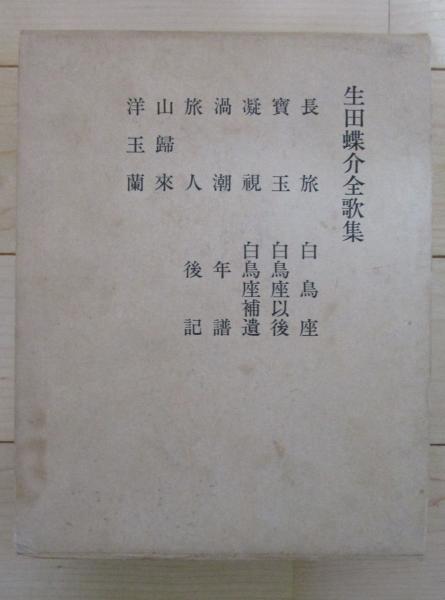 生田蝶介全歌集
長旅 白鳥座
寶玉 白鳥座以後
凝視 白鳥座補遺
渦潮 年譜
旅人 後記
山歸來
洋玉蘭